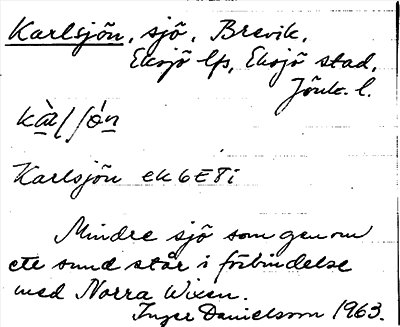 Karlsjön, sjö, Brevik,
Eksjö lfs, Eksjö stad,
Jönk. l.
Karlsjön ek 6E8i
Mindre sjö som genom
ett sund står i förbindelse
med Norra Wixen.
Inger Danielsson 1963.